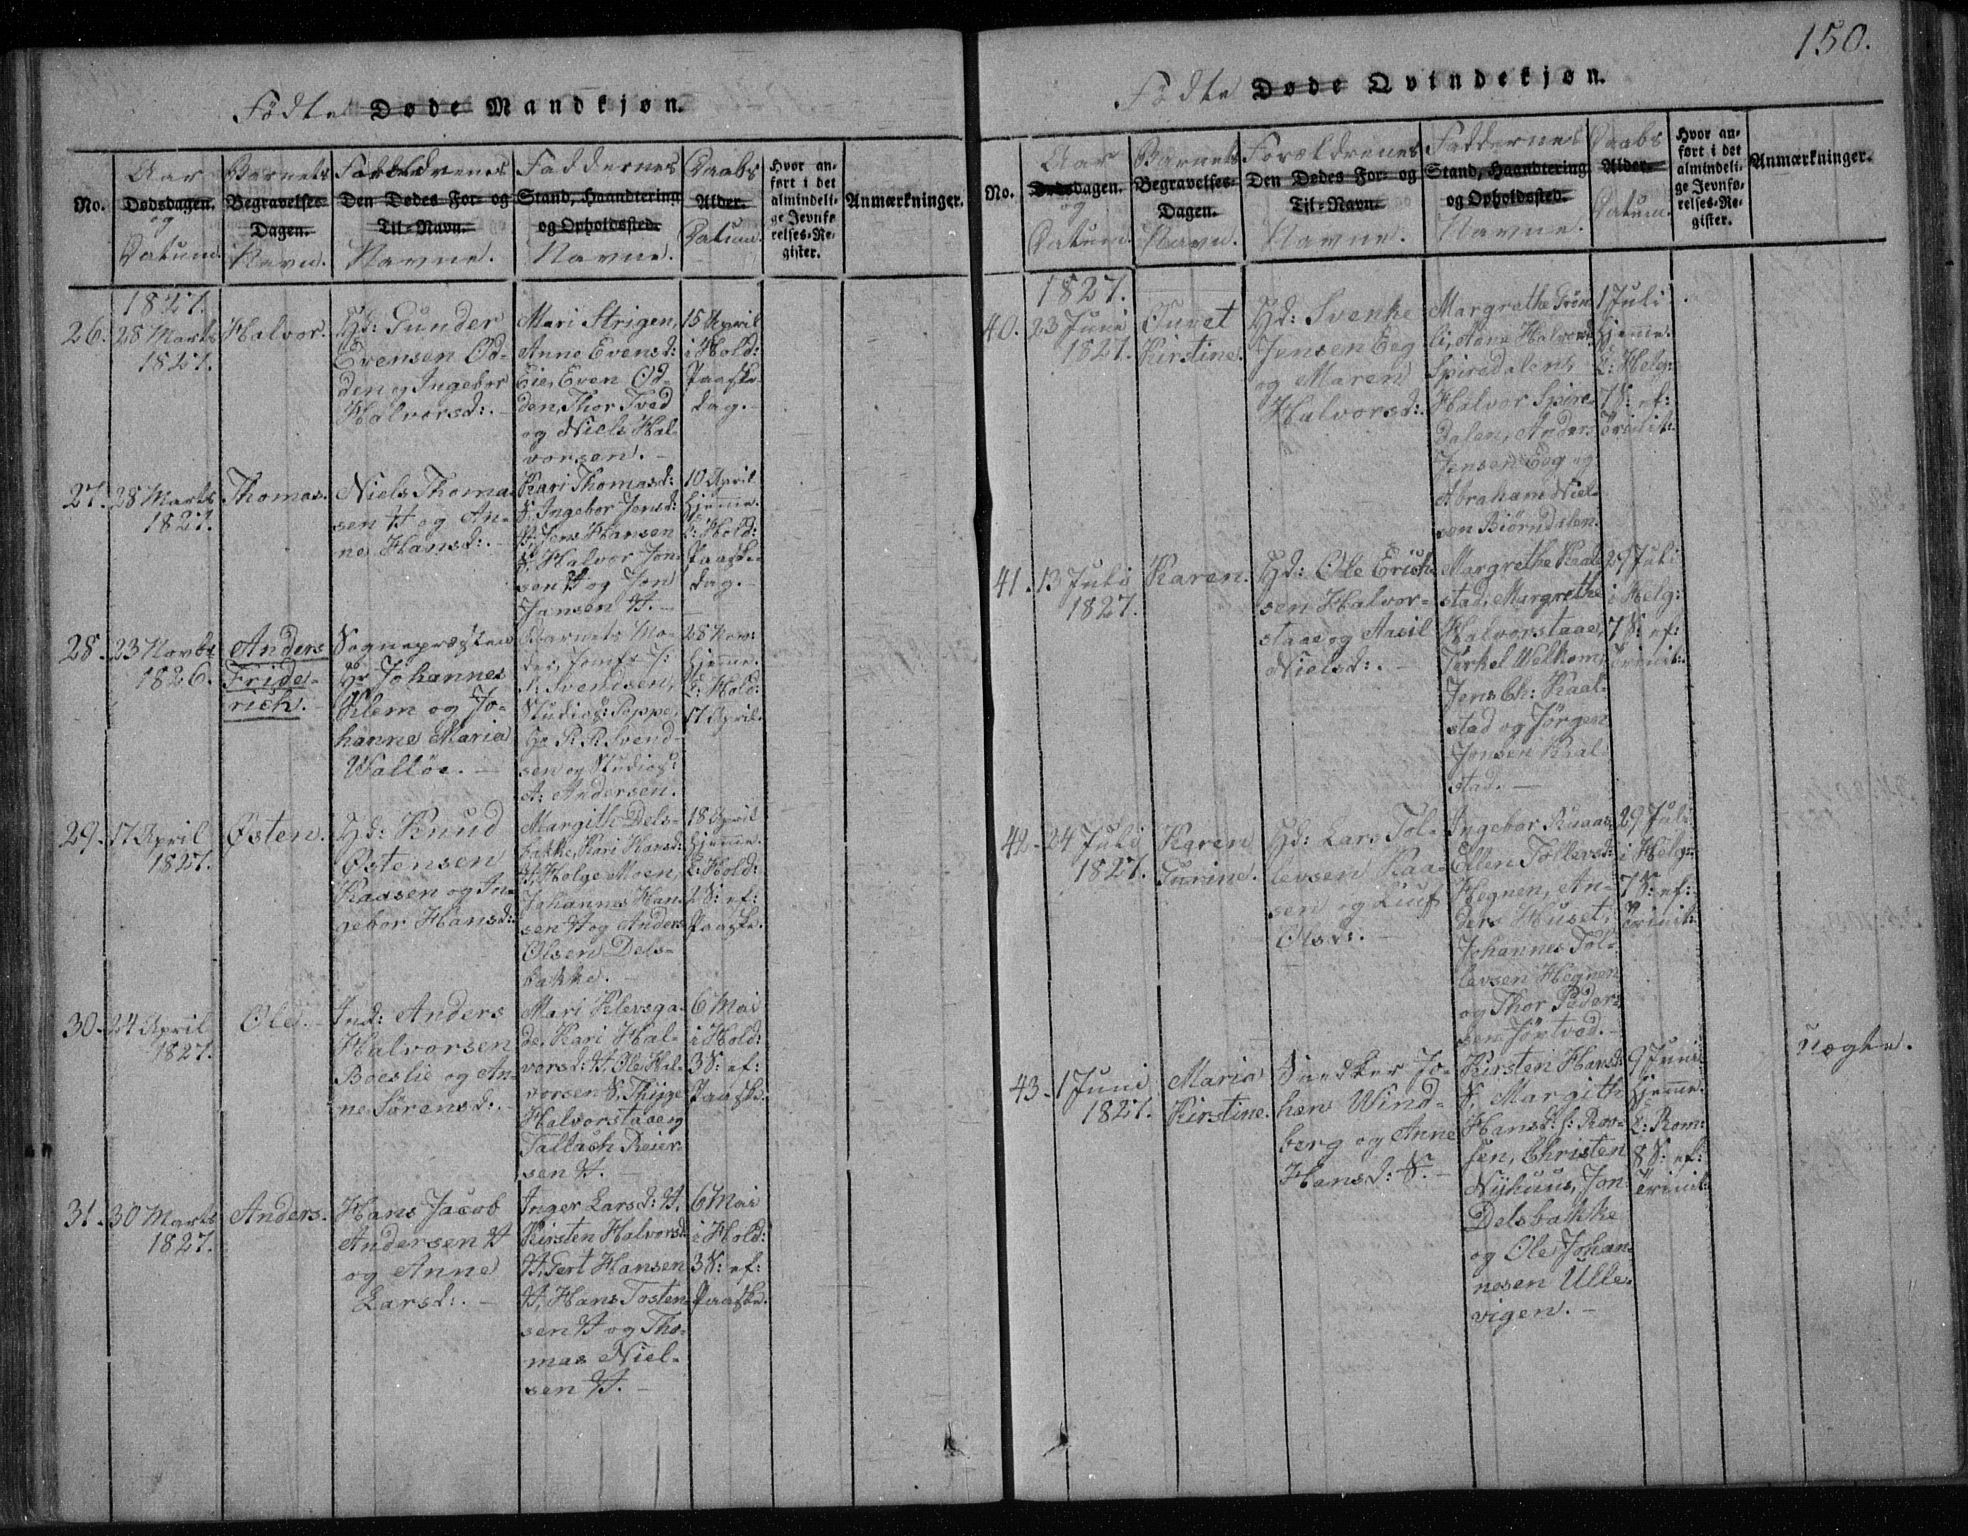 150.
Fødte Døde Mandkjøn.
No.
Aar
Dødsdagen.
og
Datum.
Barnets
Begravelses-
Dagen.
Navn.
Forældrenes
Den Dødes For- og
Til-Navn.
Navne.
Faddernes
Stand, Haandtering
og Opholdssted.
Navne.
Daabs
Alder.
Datum.
Hvor an-
ført i det
almindeli-
ge Jevnfø-
relses-Re-
gister.
Anmærkninger.
1827.
26. 28 Marts
1827.
Halvor.
Gd: Gunder
Evensen Od-
den og Ingebor
Halvorsd:. -
Mari Strigen,
Anne Evensd:
Eie, Even Od-
den, Thor Tved
og Niels Hal-
vorsen. -
15 April
i Hold:
Paaske-
dag. -
27. 28 Marts
1827.
Thomas.
Niels Thoma-
sen H og An-
ne Hansd:. -
Kari Thomasd:
S, Ingebor Jensd:
H, Jens Hansen
S, Halvor Jon-
sen H og Jon
Jansen H. -
10 April
hjemme.
C: Hold:
Paaske-
dag. -
28. 23 Novbr
1826.
Anders
Fride-
rich.
Sognepræsten
Hr Johannes
Klem og Jo-
hanne Maria
Walløe. -
Barnets Mo-
der, Jomfr J:
S: Svendsen,
Studios: Poppe,
Hr P. R. Svend-
sen og Studios:
A: Andersen.
28 Nov:
hjemme.
C: Hold:
17 April.
29. 17 April
1827.
Østen.
Gd: Knud
Østensen
Kaasen og In-
gebor Hansd:
Margith Dels-
bakke, Kari Hansd:
H, Helge Moen,
Johannes Han-
sen H og Anders
Olsen Dels-
bakke. -
18 April
hjemme.
C: Hold:
2 S: ef:
Paaske.
30. 24 April
1827.
Ole.
Ind: Anders
Halvorsen
Boeslie og An-
ne Sørensd:.
Mari Klevsga-
de, Kari Hal-
vorsd: H, Ole Hal-
vorsen S, Thyge
Halvorstaae og
Tallach Reier-
sen H. -
6 Mai
i Hold:
3 S: ef:
Paaske.
31. 30 Marts
1827.
Anders.
Hans Jacob
Andersen H
og Anne
Larsd:. -
Inger Larsd: H,
Kirsten Halvorsd:
H, Gert Hansen
H, Hans Tosten-
sen H og Tho-
mas Niel-
sen H. -
6 Mai
i Hold:
3 S: ef:
Paaske.
Fødte Døde Qvindekjøn.
No.
Aar
Dødsdagen.
og
Datum.
Barnets
Begravelses-
Dagen.
Navn.
Forældrenes
Den Dødes For- og
Til-Navn.
Navne.
Faddernes
Stand, Haandtering
og Opholdssted.
Navne.
Daabs
Alder.
Datum.
Hvor an-
ført i det
almindeli-
ge Jevnfø-
relses-Re-
gister.
Anmærkninger.
1827.
40. 23 Juni
1827.
Juret
Kirstine.
Gd: Svenke
Jensen Eeg
og Maren
Halvorsd:.
Margrethe Grøn-
li, Anne Halvorsd:
Spiredalen,
Halvor Spire-
dalen, Anders
Jensen Eeg og
Abraham Niel-
sen Biørndalen.
1 Juli
hjemme.
C: Helg:
7 S: ef:
Trinit:
41. 13 Juli
1827.
Karen.
Gd: Ole Erich-
sen Halvor-
staae og Aasil
Nielsd:. -
Margrethe Kaal-
stad, Margrethe
Halvorstaae,
Terkel Welkom,
Jens Ch: Kaal-
stad og Jørgen
Jonsen Kaal-
stad. -
29 Juli
i Helg:
7 S: ef:
Trinit:
42. 24 Juli
1827.
Karen
Gurine.
Gd: Lars Tol-
levsen Kaa-
sen og Liuf
Olsd:. -
Ingebor Ruaas,
Ellen Tollevsd:
Hegnen, An-
ders Huset,
Johannes Tol-
levsen Hegnen
og Thor Peder-
sen Jørtvod.
29 Juli
i Helg:
7 S: ef:
Trinit:
43. 1 Juni
1827.
Maria
Kirstine.
Snedker Jo-
han Wind-
berg og Anne
Hansd: S. -
Kirsten Hansd:
S, Margith
Hansd: f: Rov-
sen, Christen
Nyhuus, Jon
Delsbakke
og Ole Johan-
nesen Ulle-
vigen. -
9 Juni
hjemme.
C: Rom:
8 S: ef:
Trinit:
Uægte.